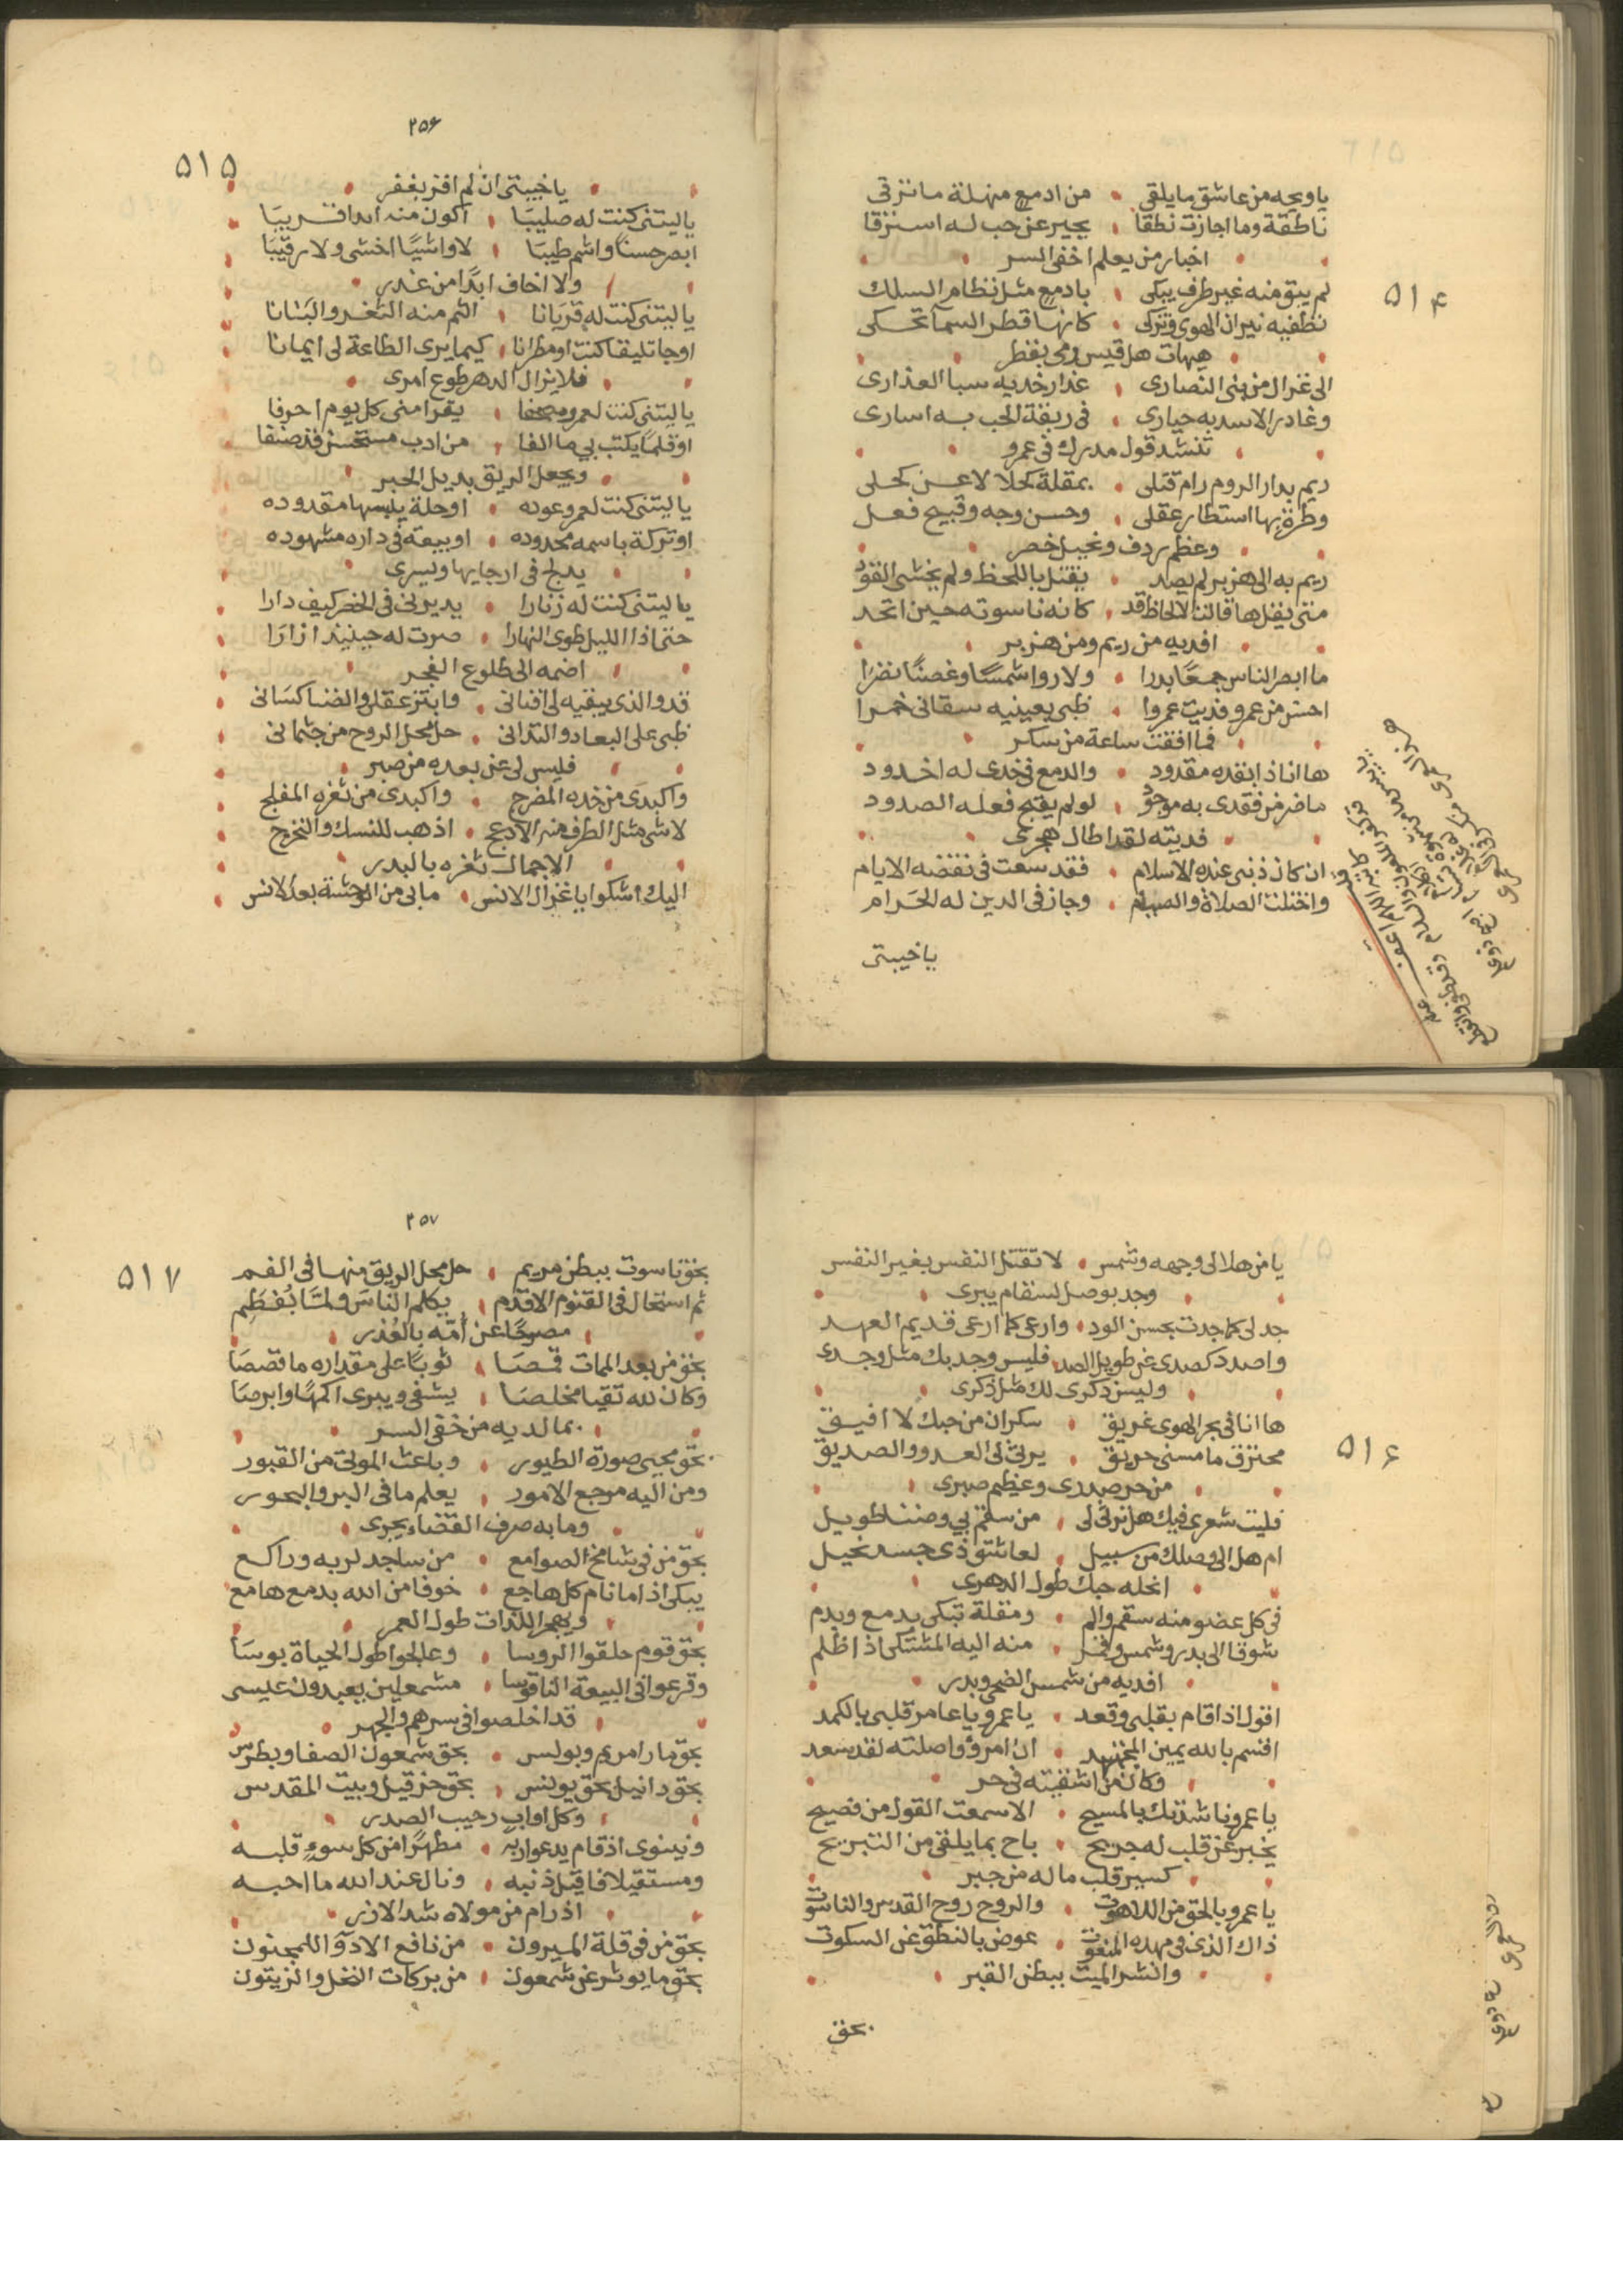 يا ويحه من عاشق ما يلقى من ادمع منهلة ما ترقى
ناطقة وما اجازت نطقا يجير عن حب له استرقا
اخبار من يعلم اخفى السر
٥١٤
لم يبق منه غير طرف يبكى بادمع مثل نظام السلك
نطفيه نيران الهوى وتزكى كانها قطر السما تحكى
هيهات هل قيس دمى بقطر
الى غزال من بنى النصارى عذار خديه سبا العذارى
وغادر الاسد به حيارى فى ربقة الحب به اسارى
تنشد قول مدرك فى عمرو
ريم بدار الروم رام قتلى بمقلة كحلا لا عن كحلى
وطرة بها استطار عقلى وحسن وجه وقبيح فعل
وعظم ردف ونحيل خصر
ريم به الى هزبر لم يصد يقتل باللحظ ولم يخشى القود
متى يقل ها قالت الالحاظ قد كانه ناسوته حين اتحد
افديه من ريم ومن هزبر
ما ابصر الناس جمعًا بدرا ولا روا شمسًا وغصنًا نضرا
احسن من عمرو فديت عمروا ظبى بعينيه سقانى خمرا
فما افقت ساعة من سكر
ها انا ذا بقده مقدود والدمع فى خدى له اخدود
ما ضر من فقدى به موجود لو لم يقبح فعله الصدود
فديته لقد اطال هجرى
ان كان ذنبى عنده الاسلام فقد سعت فى نقضه الايام
واختلت الصلاة والصيام وجاز فى الدين له الحرام
يا خيبتى
٢٥۶
٥١٥
يا خيبتى ان لم افز بغفر
يا ليتنى كنت له صليبًا اكون منه ابدا قريبًا
ابصر حسنًا واشم طيبًا لا واشيًا اخشى ولا رقيبًا
ولا اخاف ابدًا من غدر
يا ليتنى كنت له قربانا الثم منه الثغر والبنانا
او جاثليقا كنت او مطرانا كيما يرى الطاعة لى ايمانا
فلا يزال الدهر طوع امرى
يا ليتنى كنت لعمرو مصحفا يقرا منى كل يوم احرفا
او قلمًا يكتب بى ما الفا من ادب مستحسن قد صنفا
ويجعل الريق بديل الحبر
يا ليتنى كنت لعمرو عوده او حلة يلبسها مقدوده
او تركة باسمه محدوده او بيعة فى داره مشهوده
يدلج فى ارجايها ويسرى
يا ليتنى كنت له زنارا يديرنى فى الخصر كيف دارا
حتى اذا الليل طوى النهارا صرت له حينيذ ازارًا
اضمه الى طلوع الفجر
قد والذى يبقيه لى افنانى وابتز عقلى والضنا كسانى
ظبى على البعاد والتدانى حل محل الروح من جثمانى
فليس لى عن بعده من صبر
واكبدى من خده المضرج واكبدى من ثغره المفلج
لا شى مثل الطرف منه الادعج اذهب للنسك والتحرج
الاجمال ثغره بالبدر
اليك اشكوا يا غزال الانس ما بى من الوحشة بعد الانس
يا من هلالى وجهه وشمس لا تقتل النفس بغير النفس
وجد بوصل لسقام يبرى
جد لى كما جدت بحسن الود وارعى كما ارعى قديم العهد
واصدد كصدى عن طويل الصد فليس وجد بك مثل وجدى
وليس ذكرى لك مثل ذكرى
ها انا فى بحر الهوى غريق سكران من حبك لا افيق
٥١۶
محترق ما مسنى حريق يرثى لى العدو والصديق
من حر صدرى وعظيم صبرى
فليت شعرى فيك هل ترثى لى من سقم بى وضنا طويل
ام هل الى وصلك من سبيل لعاشق ذى جسد نحيل
انحله حبك طول الدهرى
فى كل عضو منه سقم والم ومقلة تبكى بدمع وبدم
شوقا الى بدر وشمس وقمر منه اليه المشتكى اذ اظلم
افديه من شمس الضحى وبدر
اقول اذا قام بقلبى وقعد يا عمرو يا عامر قلبى بالكمد
اقسم بالله يمين المجتهد ان امرؤ واصلته لقد سعد
وكان من اشقيته فى حر
يا عمرو ناشدتك بالمسيح الا سمعت القول من فصيح
يخبر عن قلب له جريح باح بما يلقى من التبريح
كسير قلب ما له من جبر
يا عمرو بالحق من اللاهوت والروح روح القدس والناسوت
ذاك الذى فى مهده المنعوت عوض بالنطق عن السكوت
وانشر الميت ببطن القبر
بحق
٢٥٧
٥١٧
بحق ناسوت ببطن مريم حل محل الريق منها فى الفم
ثم استحال فى القنوم الاقدم يكلم الناس ولما يفطم
مصرحًا عن امه بالعذر
بحق من بعد الممات قمصا ثوبًا على مقداره ما قصصا
وكان لله تقيا مخلصا يشفى ويبرى اكمهًا وابرصا
بما لديه من خفى السر
بحق محيى صورة الطيور وباعث الموتى من القبور
ومن اليه مرجع الامور يعلم ما فى البر والبحور
وما به صرف القضاء يجرى
بحق من فى شامخ الصوامع من ساجد لربه وراكع
يبكى اذا ما نام كل هاجع خوفا من الله بدمع هامع
ويهجر اللذات طول العمر
بحق قوم حلقوا الروسا وعالجوا طول الحياة بوسا
وقرعوا فى البيعة الناقوسا مشمعلين يعبدون عيسى
قد اخلصوا فى سرهم والجهر
بحق مارا مريم وبولس بحق شمعون الصفا وبطرس
بحق دانيل بحق يونس بحق حزقيل وبيت المقدس
وكل اواب رحيب الصدر
ونينوى اذ قام يدعوا ربه مطهرًا من كل سوء قلبه
ومستقيلا فاقيل ذنبه ونال عند الله ما احبه
اذ رام من مولاه شد الازر
بحق من فى قلة الميرون من نافع الادوا للمجنون
بحق ما يوثر عن شمعون من بركات النخل والزيتون